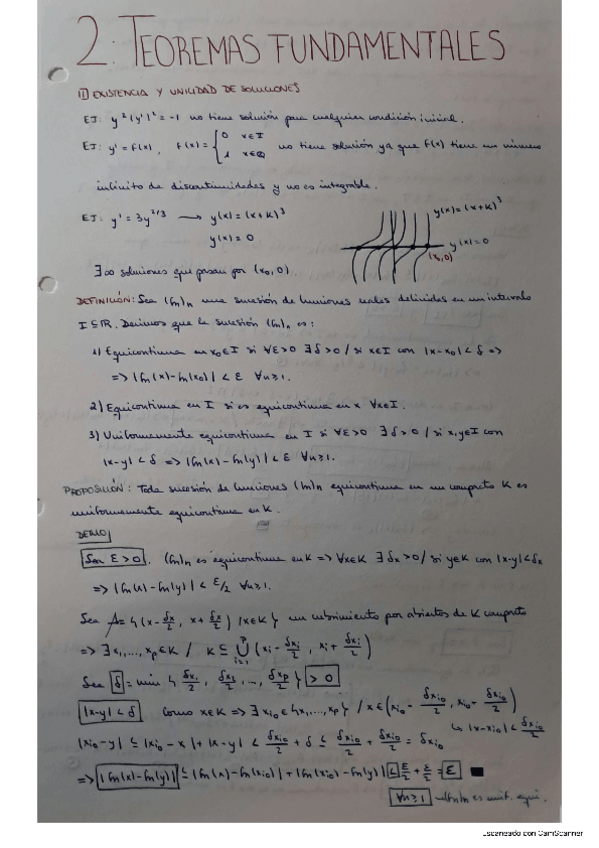 2: TEOREMAS FUNDAMENTALES
1) EXISTENCIA Y UNICIDAD DE SOLUCIONES
EJ: y²(y')² = -1 no tiene solución para cualquier condición inicial.
EJ: y' = f(x), f(x) = { 0 x∈I
1 x∈Q no tiene solución ya que f(x) tiene un número
infinito de discontinuidades y no es integrable.
EJ: y' = 3y^{2/3} → y(x) = (x+K)³
y(x) = 0
y(x) = (x+K)³
y(x) = 0
(x₀,0)
∃ ∞ soluciones que pasan por (x₀,0).
DEFINICIÓN: Sea (fn)n una sucesión de funciones reales definidas en un intervalo
I ⊆ ℝ. Decimos que la sucesión (fn)n es:
1) Equicontinua en x₀∈I si ∀ε>0 ∃δ>0 / si x∈I con |x-x₀|<δ =>
=> |fn(x)-fn(x₀)| < ε ∀n≥1.
2) Equicontinua en I si es equicontinua en x ∀x∈I.
3) Uniformemente equicontinua en I si ∀ε>0 ∃δ>0 / si x,y∈I con
|x-y|<δ => |fn(x)-fn(y)| < ε ∀n≥1.
PROPOSICIÓN: Toda sucesión de funciones (fn)n equicontinua en un compacto K es
uniformemente equicontinua en K.
DEMO
Sea ε>0. (fn)n es equicontinua en K => ∀x∈K ∃δx>0 / si y∈K con |x-y|<δx
=> |fn(x)-fn(y)| < ε/2 ∀n≥1.
Sea A = {(x - δx/2, x + δx/2) / x∈K} un recubrimiento por abiertos de K compacto
=> ∃ x₁,...,xp∈K / K ⊆ ⋃_{i=1}^{p} (xi - δxi/2, xi + δxi/2)
Sea δ = min {δx₁/2, δx₂/2, ..., δxp/2} > 0
|x-y|<δ Como x∈K => ∃ xi₀∈{x₁,...,xp} / x∈(xi₀ - δxi₀/2, xi₀ + δxi₀/2)
↳ |x-xi₀| < δxi₀/2
|xi₀-y| ≤ |xi₀-x| + |x-y| < δxi₀/2 + δ ≤ δxi₀/2 + δxi₀/2 = δxi₀
=> |fn(x)-fn(y)| ≤ |fn(x)-fn(xi₀)| + |fn(xi₀)-fn(y)| < ε/2 + ε/2 = ε ■
∀n≥1 (fn)n es unif. equi.
Escaneado con CamScanner